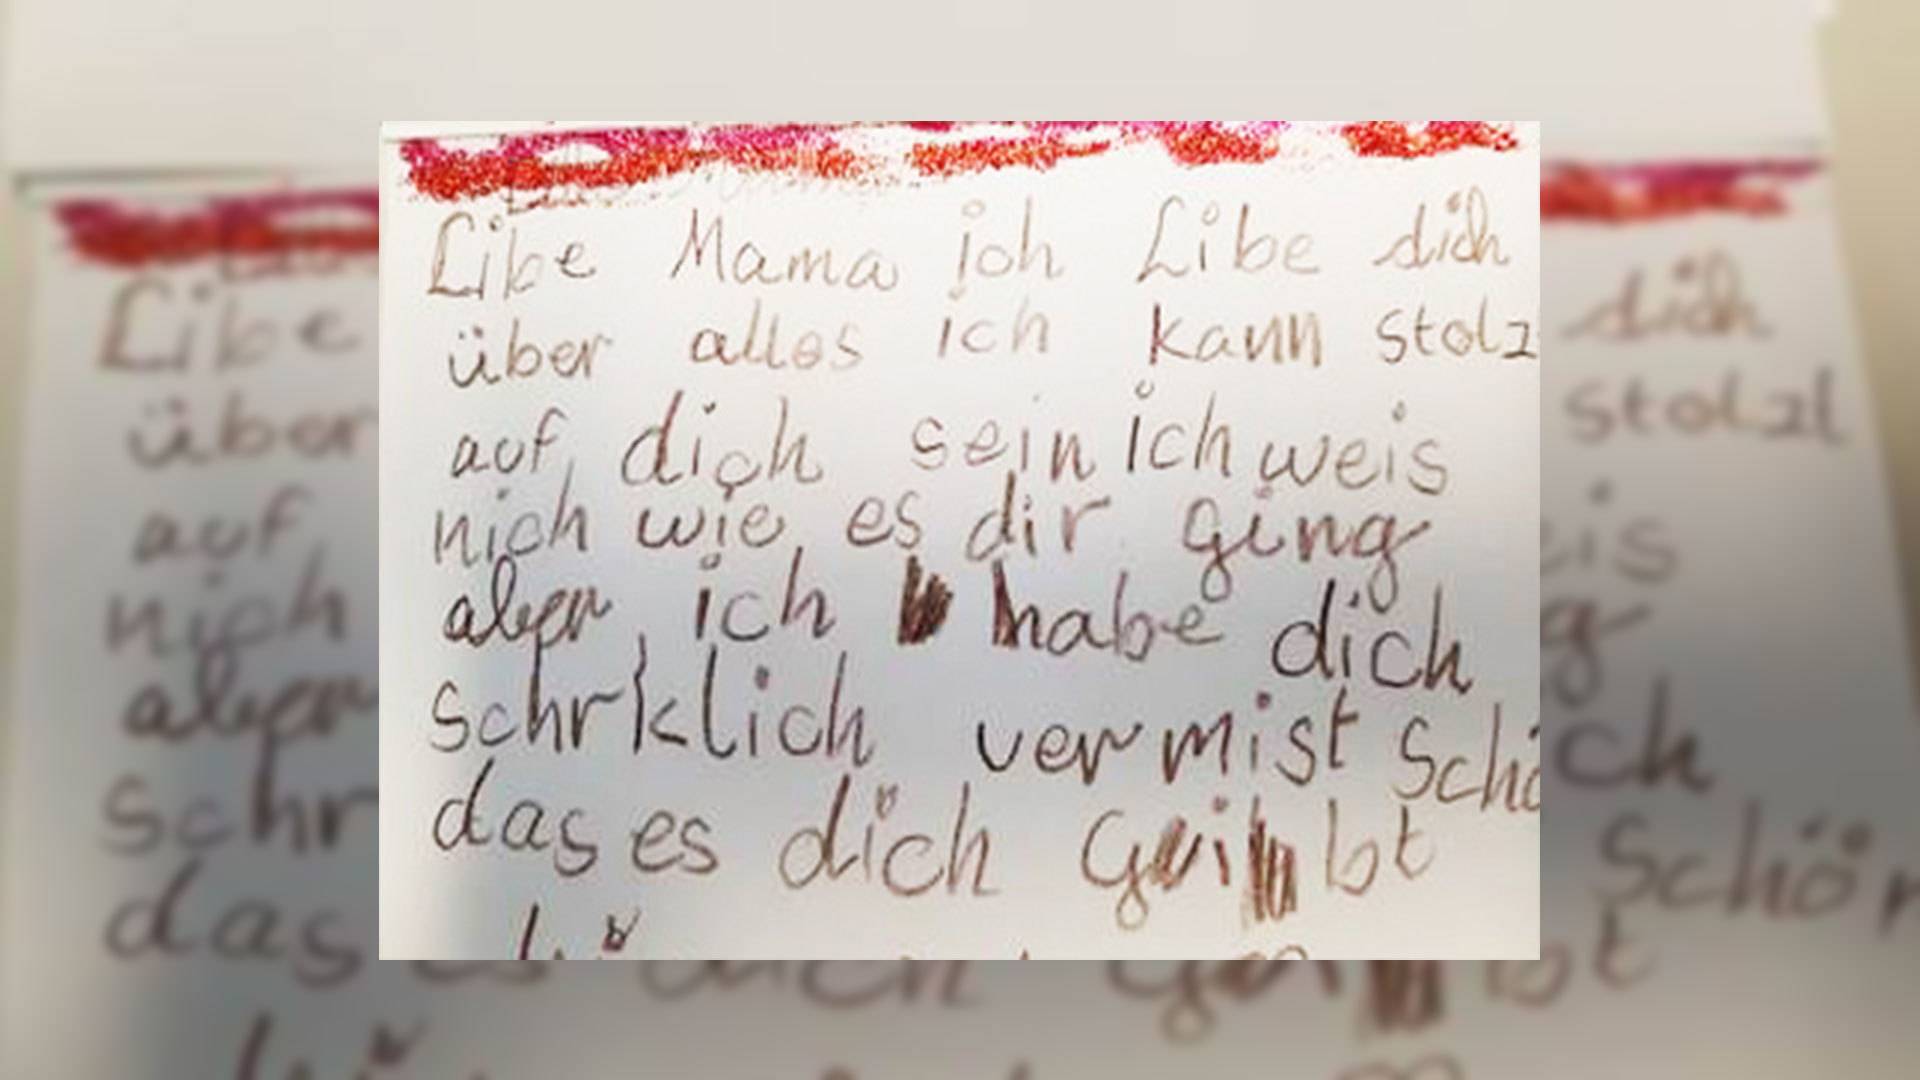 Libe Mama ich Libe dich
über alles ich kann stolz
auf dich sein ich weis
nich wie es dir ging
aber ich habe dich
schrklich vermist Schö
das es dich geibt